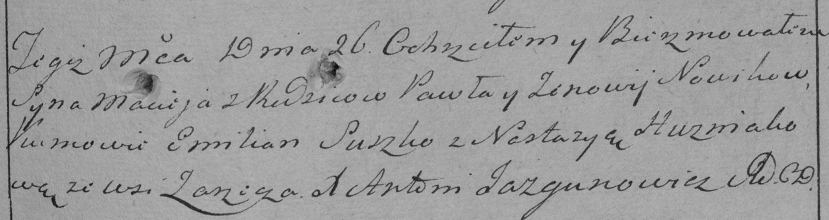 Tegiż Mca Dnia 26. Ochrzciłem y Bierzmowałem
Syna Macieja z Rodzicow Pawła y Zenowij Nowikow,
Kumowie Emilian Suszko z Nastazyą Huzniako
wą ze wsi X Antoni Jazgunowicz